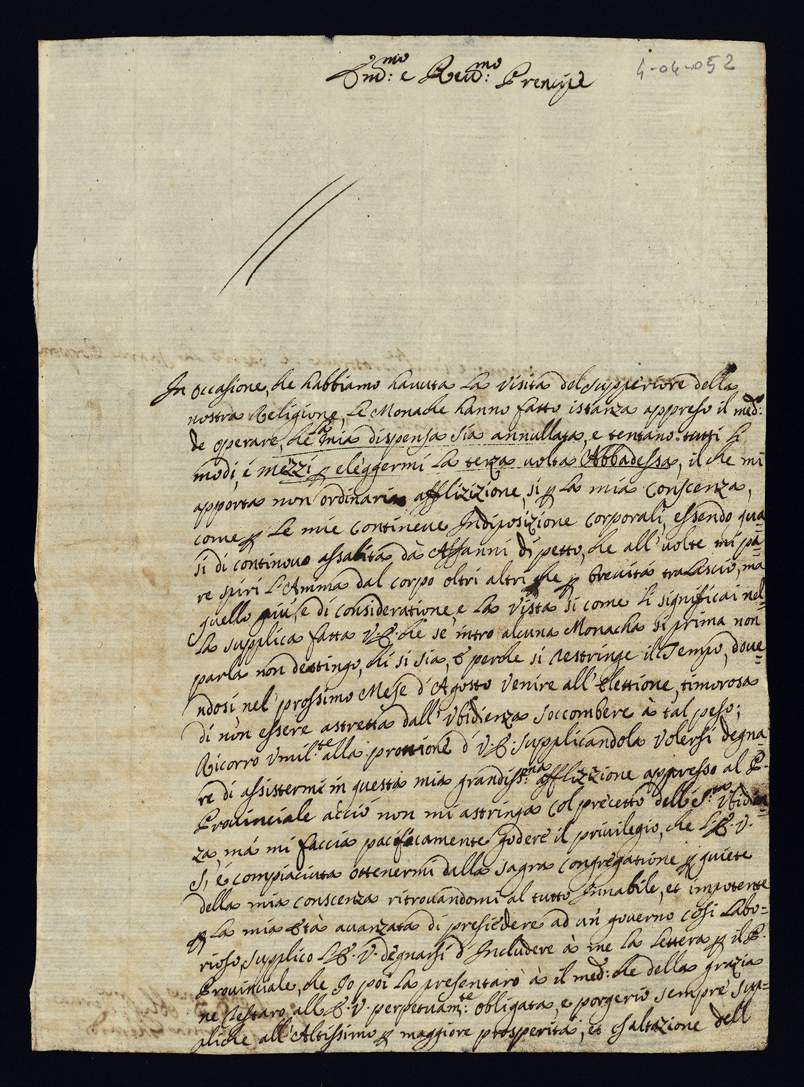 Em:mo e Reu:mo Prencipe
4-04-052
In occasione, che habbiamo hauuta la visita del supperiore della
nostra Religione, le Monache hanno fatto istanza appreso il med:
de operare, che la mia dispensa sia annullata, e tentano tutti li
modi é mezzi eleggermi la terza uolta Abbadessa, il che mi
apporta non ordinaria afflizizione, si p la mia conscenza,
come p le mie continoue Indiposizione corporali, essendo qua=
si di continouo assalita dà Affanni di petto, che all' uolte mi pa=
re spiri l'Amma dal corpo oltri altri che p breuitá tralascio, ma
quello piú, e di consideratione, e la vista si come li significai nel=
la supplica fatta V.E. che se intro alcuna Monacha si prima non
parla non destingo, chi si sia, E perche si restringe il Tempo, doue=
ndosi nel' prossimo Mese d'Agosto venire all' Elettione, timorosa
di non essere astretta dall' Vbidienza soccombere à tal peso;
Ricorro vmil:te alla prottione d' V.E. supplicandola volersi degna=
re di assistermi in questa mia grandiss:ma afflizzione appresso al P.
Prouinciale acciò non mi astringa col precetto dell' S:ta vbidien=
za, má mi faccia pacificamente godere il priuilegio, che L'E.V.
s, é compiaciuta ottenermi dalla sagra congregatione p quiete
della mia conscenza ritrouandomi al tutto Innabile, et impotente
p la mia Età auanzata di presiedere ad un' gouerno cosi labo=
rioso, supplico L'E.V. degnarsi d'Includere à me la lettera p il P.
Prouinciale, che Io poi la presentarò à il med: che della grazia
ne restarò all' E.V. perpetuam:te obligata, e porgerò sempre sup=
pliche all' Altissimo p maggiore prosperità, et esaltazione dell